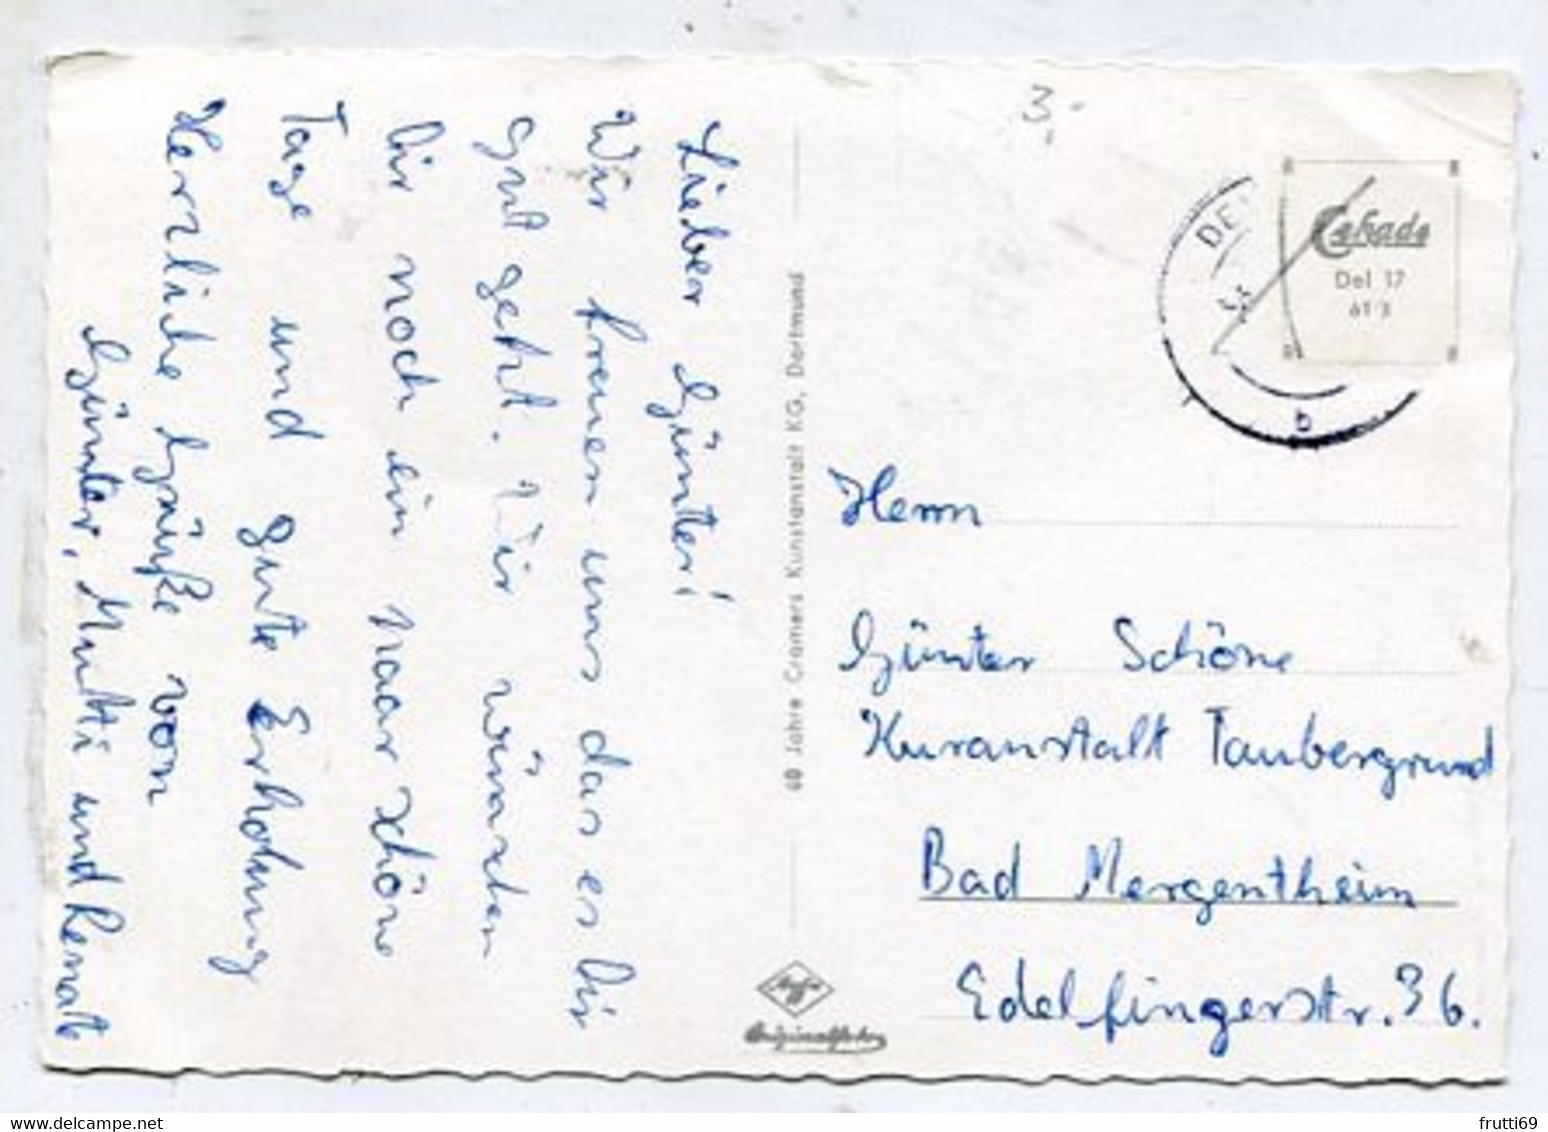 Lieber Günter!
Wir freuen uns das es Dir
gut geht. Wir wünschen
Dir noch ein paar schöne
Tage und gute Erholung
Herzliche Grüße von
Günter, Mutti und Renate
60 Jahre Cramers Kunstanstalt KG, Dortmund
Agfa
Originalfoto
3,-
DE
b
Cekade
Del 17
Herrn
Günter Schöne
Kuranstalt Taubergrund
Bad Mergentheim
Edelfingerstr. 36.
frutti69